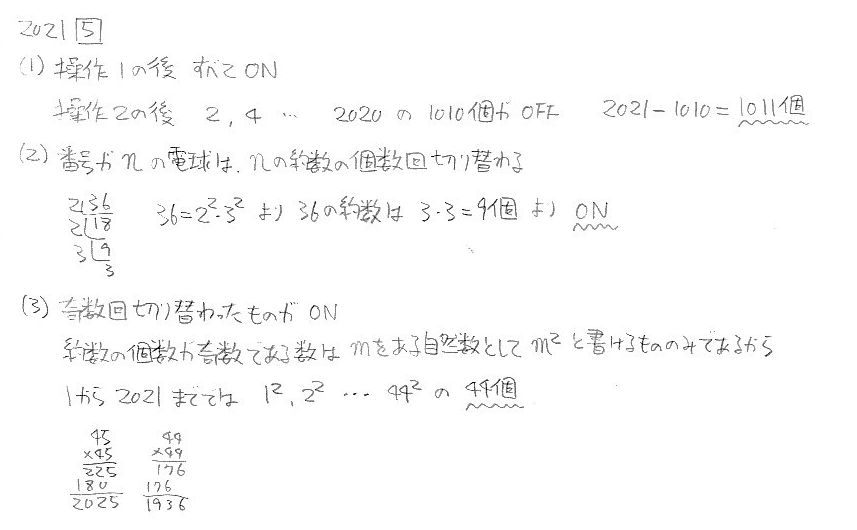 2021 5
(1) 操作1の後 すべてON
操作2の後 2, 4 … 2020 の 1010個が OFF 2021-1010=1011個
(2) 番号が n の電球は、nの約数の個数回切り替わる
2)36
2)18
3)9
3
36=2²・3² より 36の約数は 3・3=9個 より ON
(3) 奇数回切り替わったものが ON
約数の個数が奇数である数は mをある自然数として m² と書けるもののみであるから
1から 2021 まででは 1², 2² … 44² の 44個
45
×45
225
180
2025
44
×44
176
176
1936